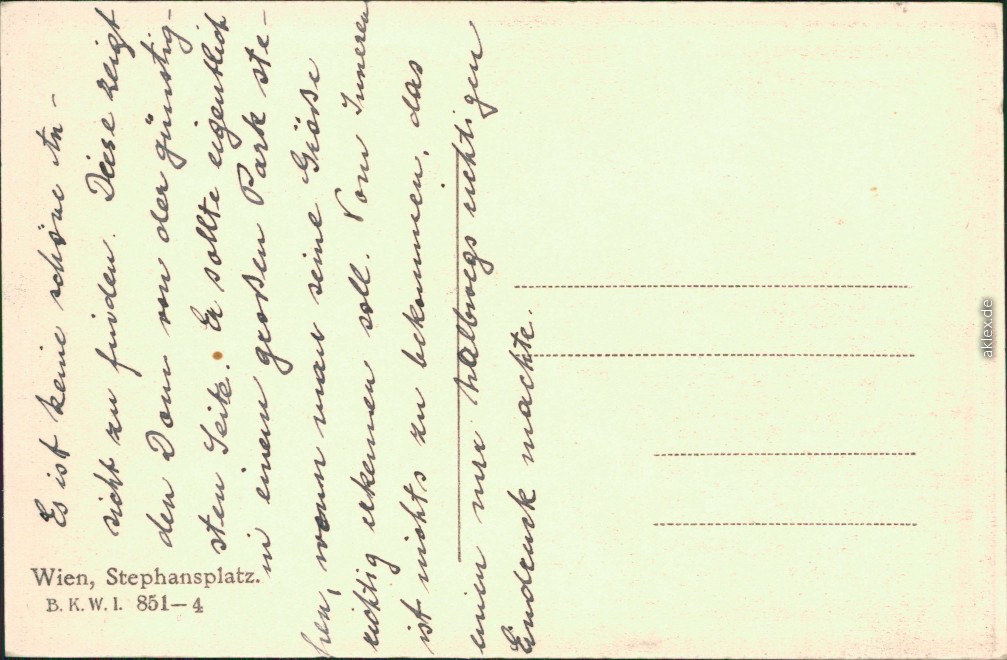 Es ist keine schöne An-
sicht zu finden. Diese zeigt
den Dom von der günstig-
sten Seite. Er sollte eigentlich
in einem großen Park ste-
hen, wenn man seine Größe
richtig erkennen soll. Vom Inneren
ist nichts zu bekommen, das
einen nur halbwegs richtigen
Eindruck machte.
Wien, Stephansplatz.
B. K. W. I. 851–4
aklex.de